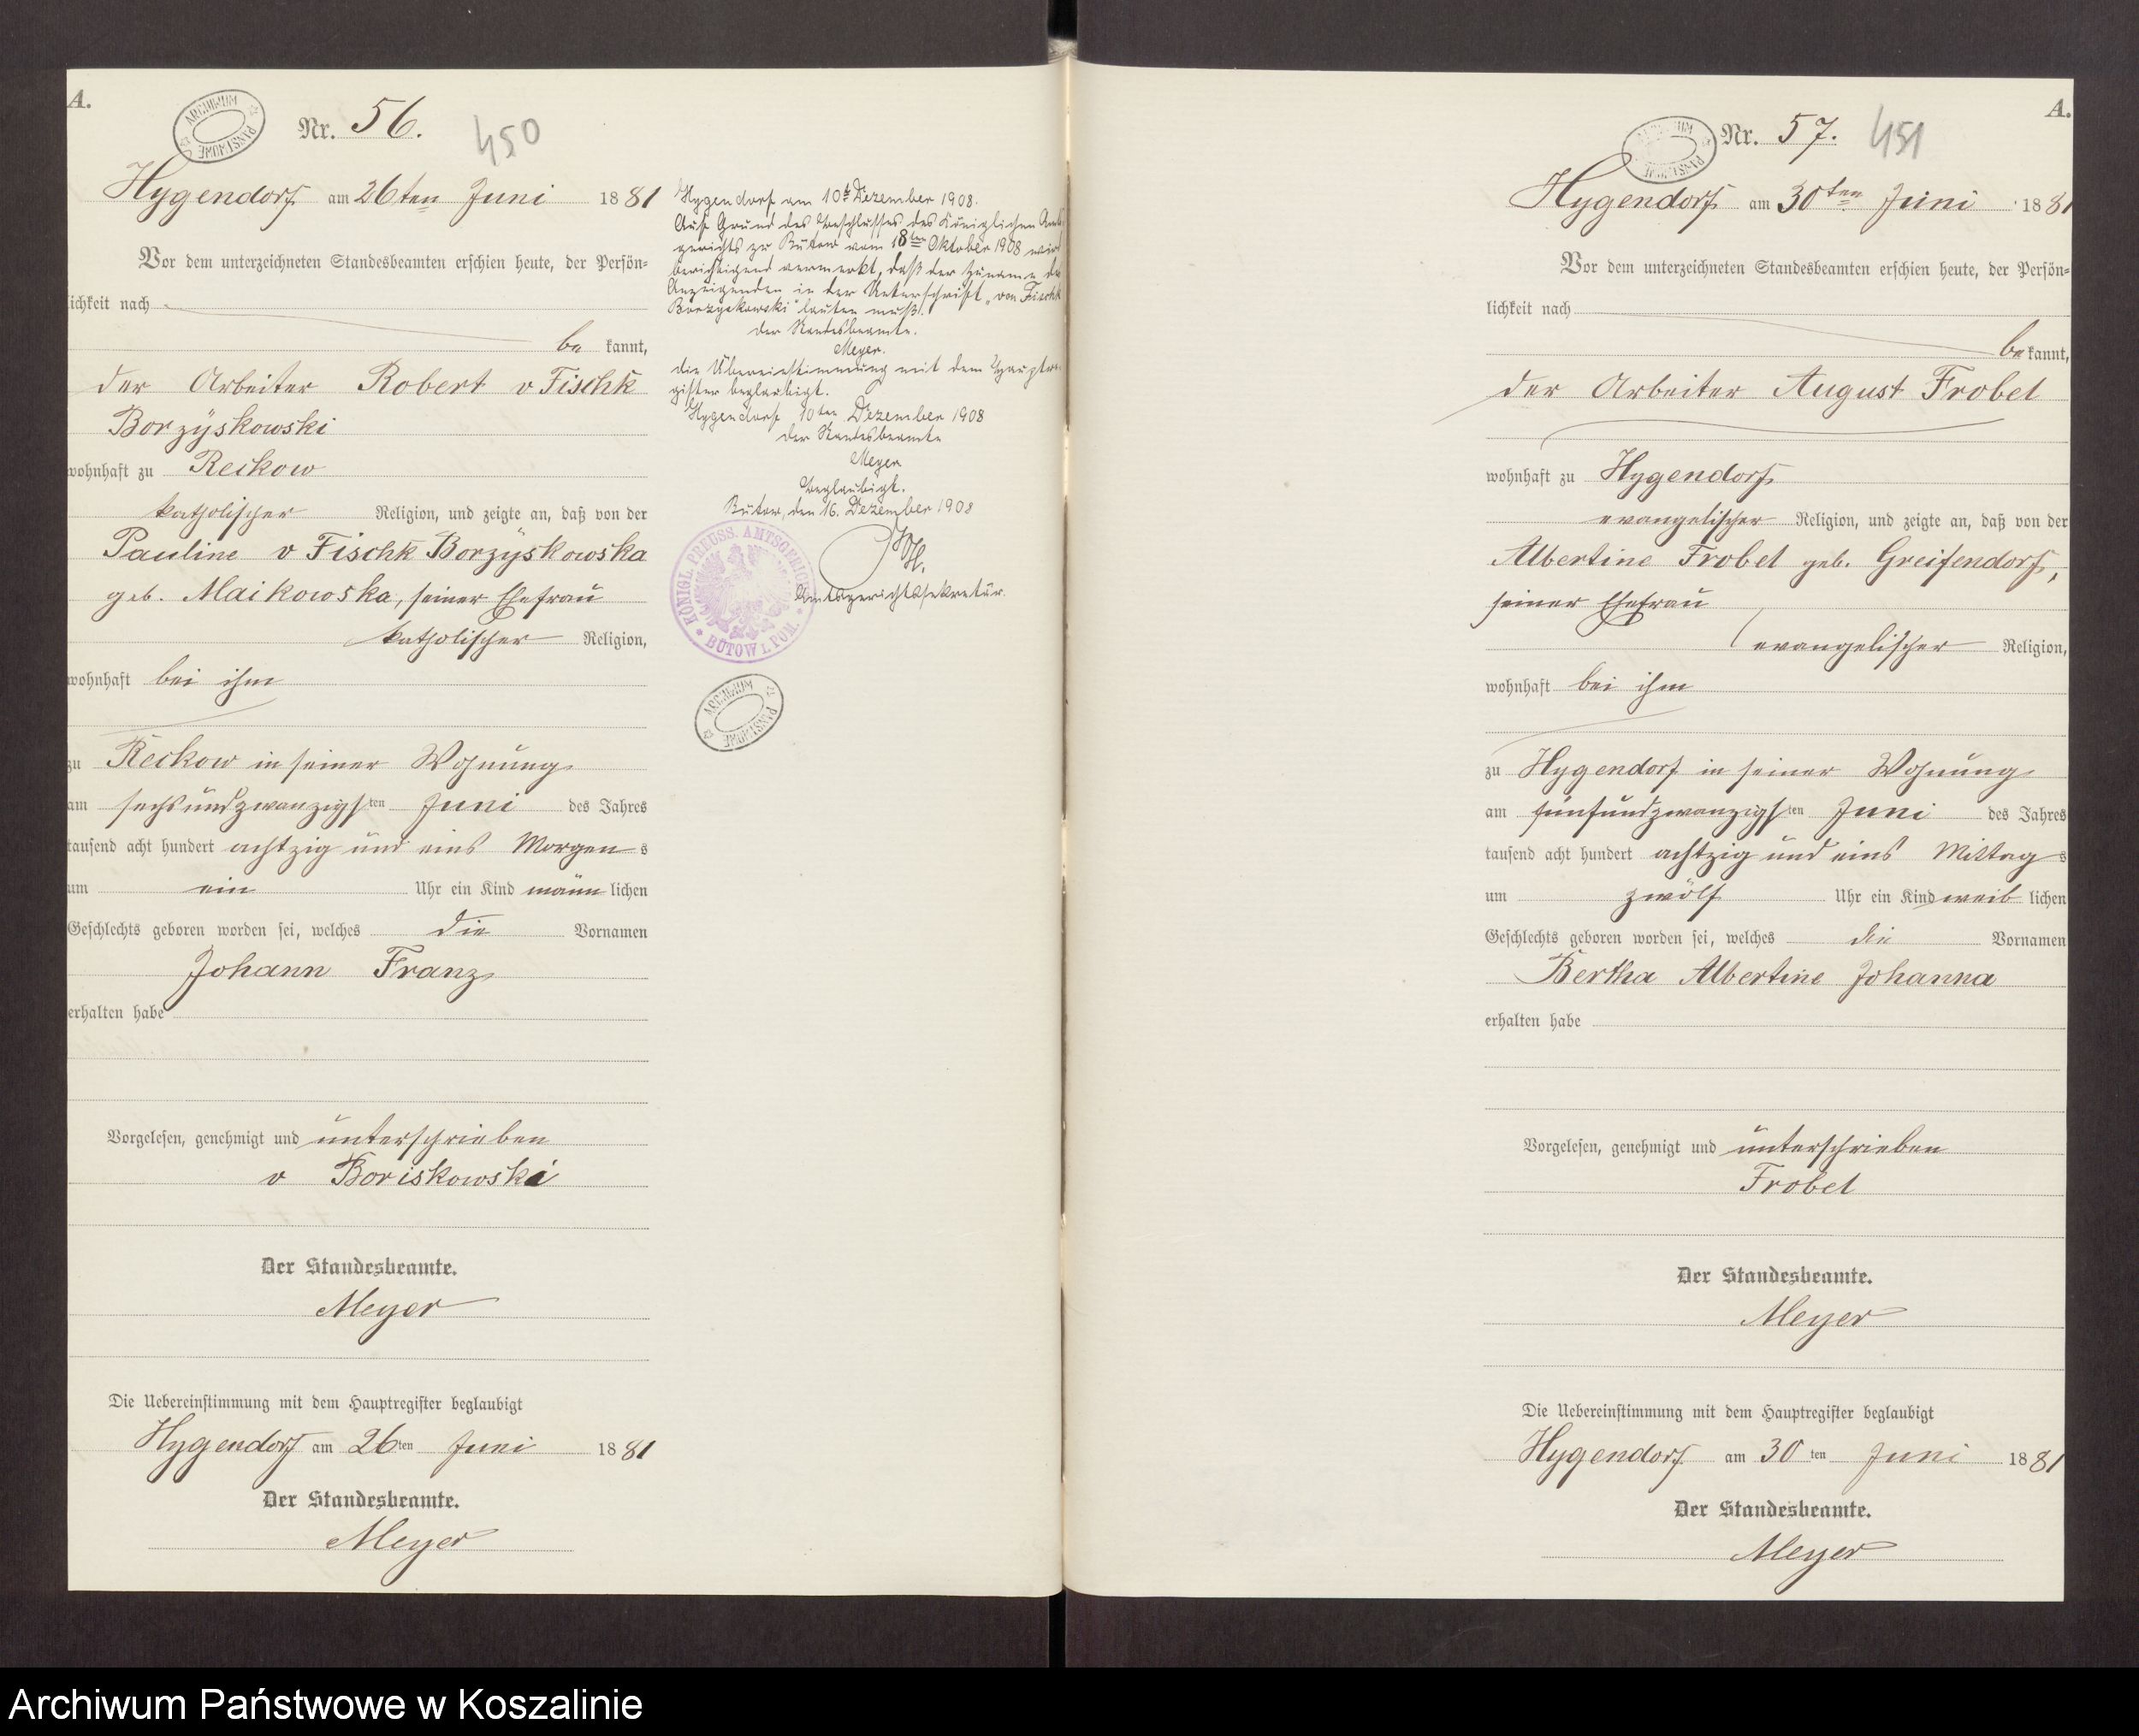 A.
ARCHIWUM PAŃSTWOWE
Nr. 56.
450
Hygendorf am 26ten Juni 1881
Vor dem unterzeichneten Standesbeamten erschien heute, der Persön-
lichkeit nach
be kannt,
der Arbeiter Robert v Fischk
Borzÿskowski
wohnhaft zu Reckow
katholischer Religion, und zeigte an, daß von der
Pauline v Fischk Borzÿskowska
geb. Maikowska, seiner Ehefrau
katholischer Religion,
wohnhaft bei ihm
zu Reckow in seiner Wohnung
am sechsundzwanzigsten Juni des Jahres
tausend acht hundert achtzig und eins Morgens
um ein Uhr ein Kind männlichen
Geschlechts geboren worden sei, welches die Vornamen
Johann Franz
erhalten habe
Vorgelesen, genehmigt und unterschrieben
v Boriskowski
Der Standesbeamte.
Meyer
Die Uebereinstimmung mit dem Hauptregister beglaubigt
Hygendorf am 26ten Juni 1881
Der Standesbeamte.
Meyer
Hygendorf am 10t Dezember 1908.
Auf Grund des Beschlusses des Königlichen Amts
gerichts zu Bütow vom 18ten Oktober 1908 wird
berichtigend vermerkt, daß der Zuname des
Anzeigenden in der Unterschrift „von Fischk
Borzyskowski" lauten muß.
Der Standesbeamte.
Meyer.
Die Übereinstimmung mit dem Hauptre-
gister beglaubigt.
Hygendorf 10ten Dezember 1908
Der Standesbeamte
Meyer
Beglaubigt.
Bütow, den 16. Dezember 1908
Amtsgerichtssekretär.
KÖNIGL. PREUSS. AMTSGERICHT
BÜTOW i. POM.
ARCHIWUM PAŃSTWOWE
A.
ARCHIWUM PAŃSTWOWE
Nr. 57.
451
Hygendorf am 30ten Juni 1881
Vor dem unterzeichneten Standesbeamten erschien heute, der Persön-
lichkeit nach
be kannt,
der Arbeiter August Frobel
wohnhaft zu Hygendorf
evangelischer Religion, und zeigte an, daß von der
Albertine Frobel geb. Greifendorf,
seiner Ehefrau
evangelischer Religion,
wohnhaft bei ihm
zu Hygendorf in seiner Wohnung
am fünfundzwanzigsten Juni des Jahres
tausend acht hundert achtzig und eins Mittags
um zwölf Uhr ein Kind weiblichen
Geschlechts geboren worden sei, welches die Vornamen
Bertha Albertine Johanna
erhalten habe
Vorgelesen, genehmigt und unterschrieben
Frobel
Der Standesbeamte.
Meyer
Die Uebereinstimmung mit dem Hauptregister beglaubigt
Hygendorf am 30ten Juni 1881
Der Standesbeamte.
Meyer
Archiwum Państwowe w Koszalinie